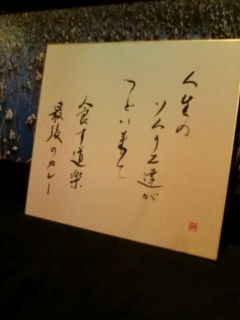 人生の
ソムリエ達が
つどい来て
食す道楽
最後のカレー